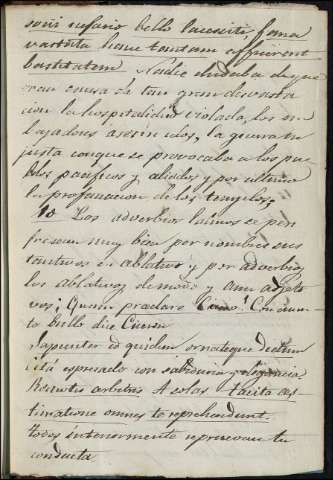 suni nefario bello lacessite, fama
vastitta hanc tantam effecerunt
bastitatem Nadie dudaba de que
eran causa de tan gran devasta
cion la hospitalidad violada, los em
bajadores asesinados, la guerra in
justa conque se provocaba a los pue
blos pacificos y aliados y por ultimo
la profanacion de los templos.
10 Los adverbios latinos se
muy bien por nombres sus
tantivos en ablativo y por adverbios
los ablativos de modo y aun adjeti
vos; Quam praclare Cicero! Con cuan
to brillo dice Ciceron
Sapienter id quidem ornateque dictum
Está espresado con sabiduria y elegancia
Remotis arbitris A solas tacita aes
timatione omnes te reprehendunt.
todos interiormente reprueban tu
conducta